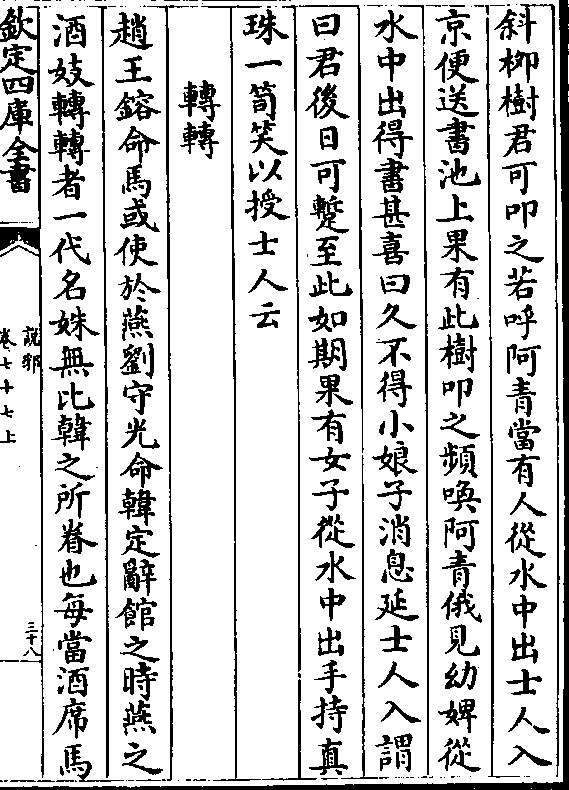 斜柳樹君可叩之若呼阿青當有人從水中出士人入
京便送書池上果有此樹叩之頻喚阿青俄見幼婢從
水中出得書甚喜曰久不得小娘子消息延士人入謂
曰君後日可蹔至此如期果有女子從水中出手持真
珠一笥笑以授士人云
轉轉
趙王鎔命馬或使於燕劉守光命韓定辭館之時燕之
酒妓轉轉者一代名姝無比韓之所眷也每當酒席馬
欽定四庫全書
說郛
卷七十七上
三十八